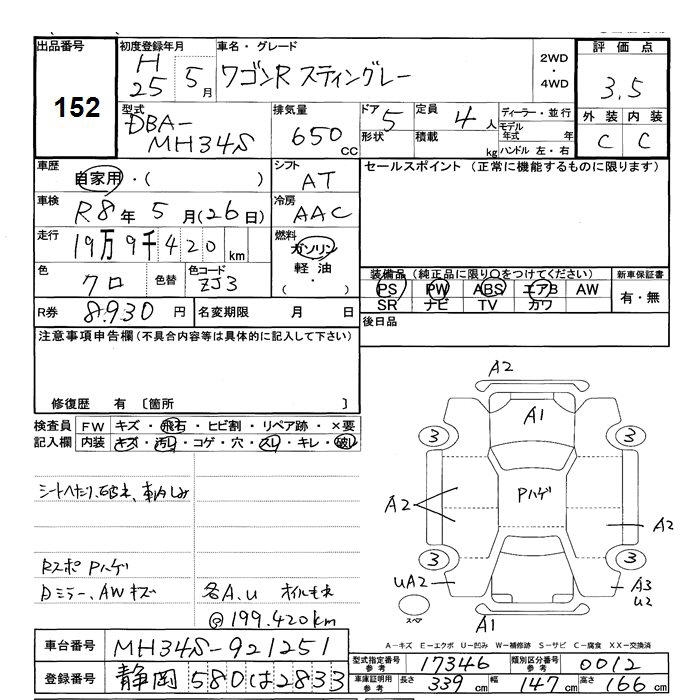 出品番号 初度登録年月 車名・グレード 評価点
152
H25 5月 ワゴンR スティングレー 2WD・4WD 3.5
型式 排気量 ドア形状 定員 積載 ディーラー・並行 外装 内装
DBA-MH34S 650cc 5 4人 kg モデル年式 年 ハンドル 左・右 C C
車歴 自家用・( ) シフト AT セールスポイント (正常に機能するものに限ります)
車検 R8年5月(26日) 冷房 AAC
走行 19万9千420km 燃料 ガソリン 軽油 ( ・ )
色 クロ 色替 色コード ZJ3
装備品(純正品に限り○をつけてください) 新車保証書
PS PW ABS エアB AW 有・無
SR ナビ TV カワ
R券 8930円 名変期限 月 日 後日品
注意事項申告欄(不具合内容等は具体的に記入して下さい)
修復歴 有 〔箇所 〕
検査員記入欄 FW キズ・飛石・ヒビ割・リペア跡・×要
内装 キズ・汚レ・コゲ・穴・スレ・キレ・破レ
シートヘタリ、破れ、車内しみ
Rスポ Pハゲ
Dミラー、AWキズ 各A、U オイルもれ
@199.420km
A2
A1
3 3
Pハゲ
A2 A2
3 3
UA2 A3 U2
スペア
A1
A-キズ E-エクボ U-凹み W-補修跡 S-サビ C-腐食 XX-交換済
車台番号 MH34S-921251
登録番号 静岡 580 は 2833
型式指定番号 参考 17346 類別区分番号 参考 0012
車庫証明用 参考 長さ 339cm 幅 147cm 高さ 166cm